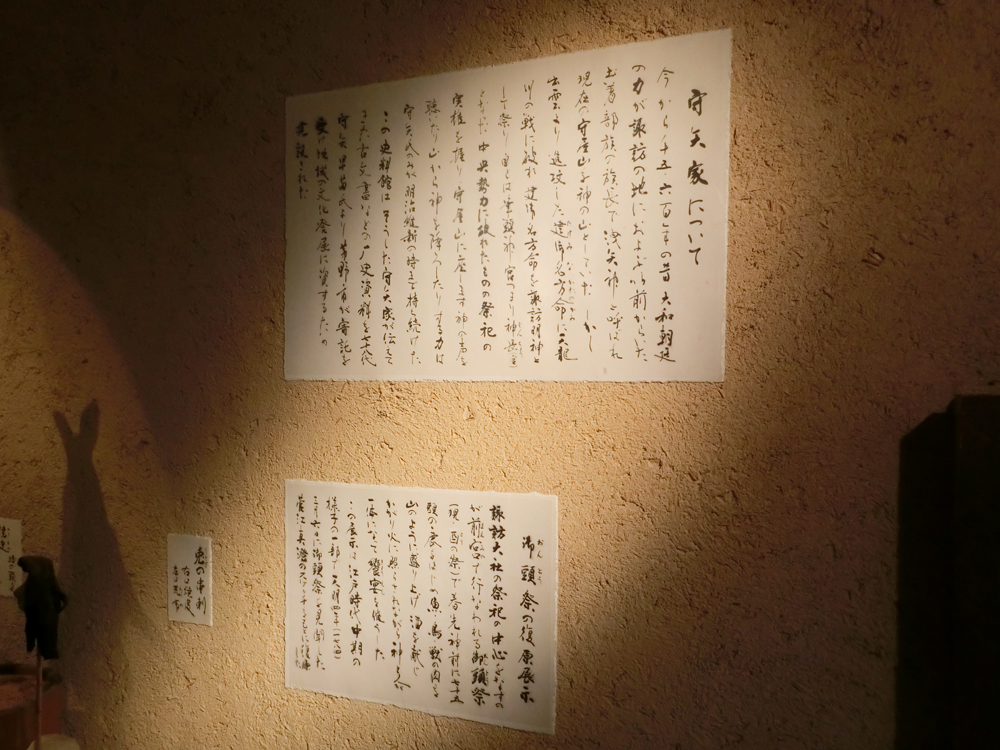 守矢家について
今から千五、六百年の昔 大和朝廷
の力が諏訪の地におよぶ以前からいた
土着部族の族長で 洩矢神と呼ばれ
現在の守屋山を神の山としていた しかし
出雲より進攻した建御名方命に天竜
川の戦に敗れ 建御名方命を諏訪明神と
して祭り 自らは 神長官
となった 中央勢力に敗れたものの祭祀の
実権を握り 守屋山に座します神の声を
聴いたり 山から神を降ろしたりする力は
守矢氏のみが明治維新の時まで持ち続けた
この史料館は そうした守矢家が伝えて
きた古文書などの歴史資料を七十八代
守矢早苗氏より茅野市が寄託を
受け 地域の文化発展に資するため
建設された
御頭祭の復原展示
おん とう
諏訪大社の祭祀の中心をなすの
が前宮で行なわれる御頭祭
(現 酉の祭)で春先 神前に七十五
頭の鹿をはじめ 魚 鳥 獣の肉を
山のように盛り上げ 酒を献じ
かがり火に照らされながら神と人が
一体になって饗宴を催した
この展示は 江戸時代中期の
様子の一部で 天明四年(一七八四)
三月六日に御頭祭を見聞した
菅江真澄のスケッチをもとに復原した
兎の串刺